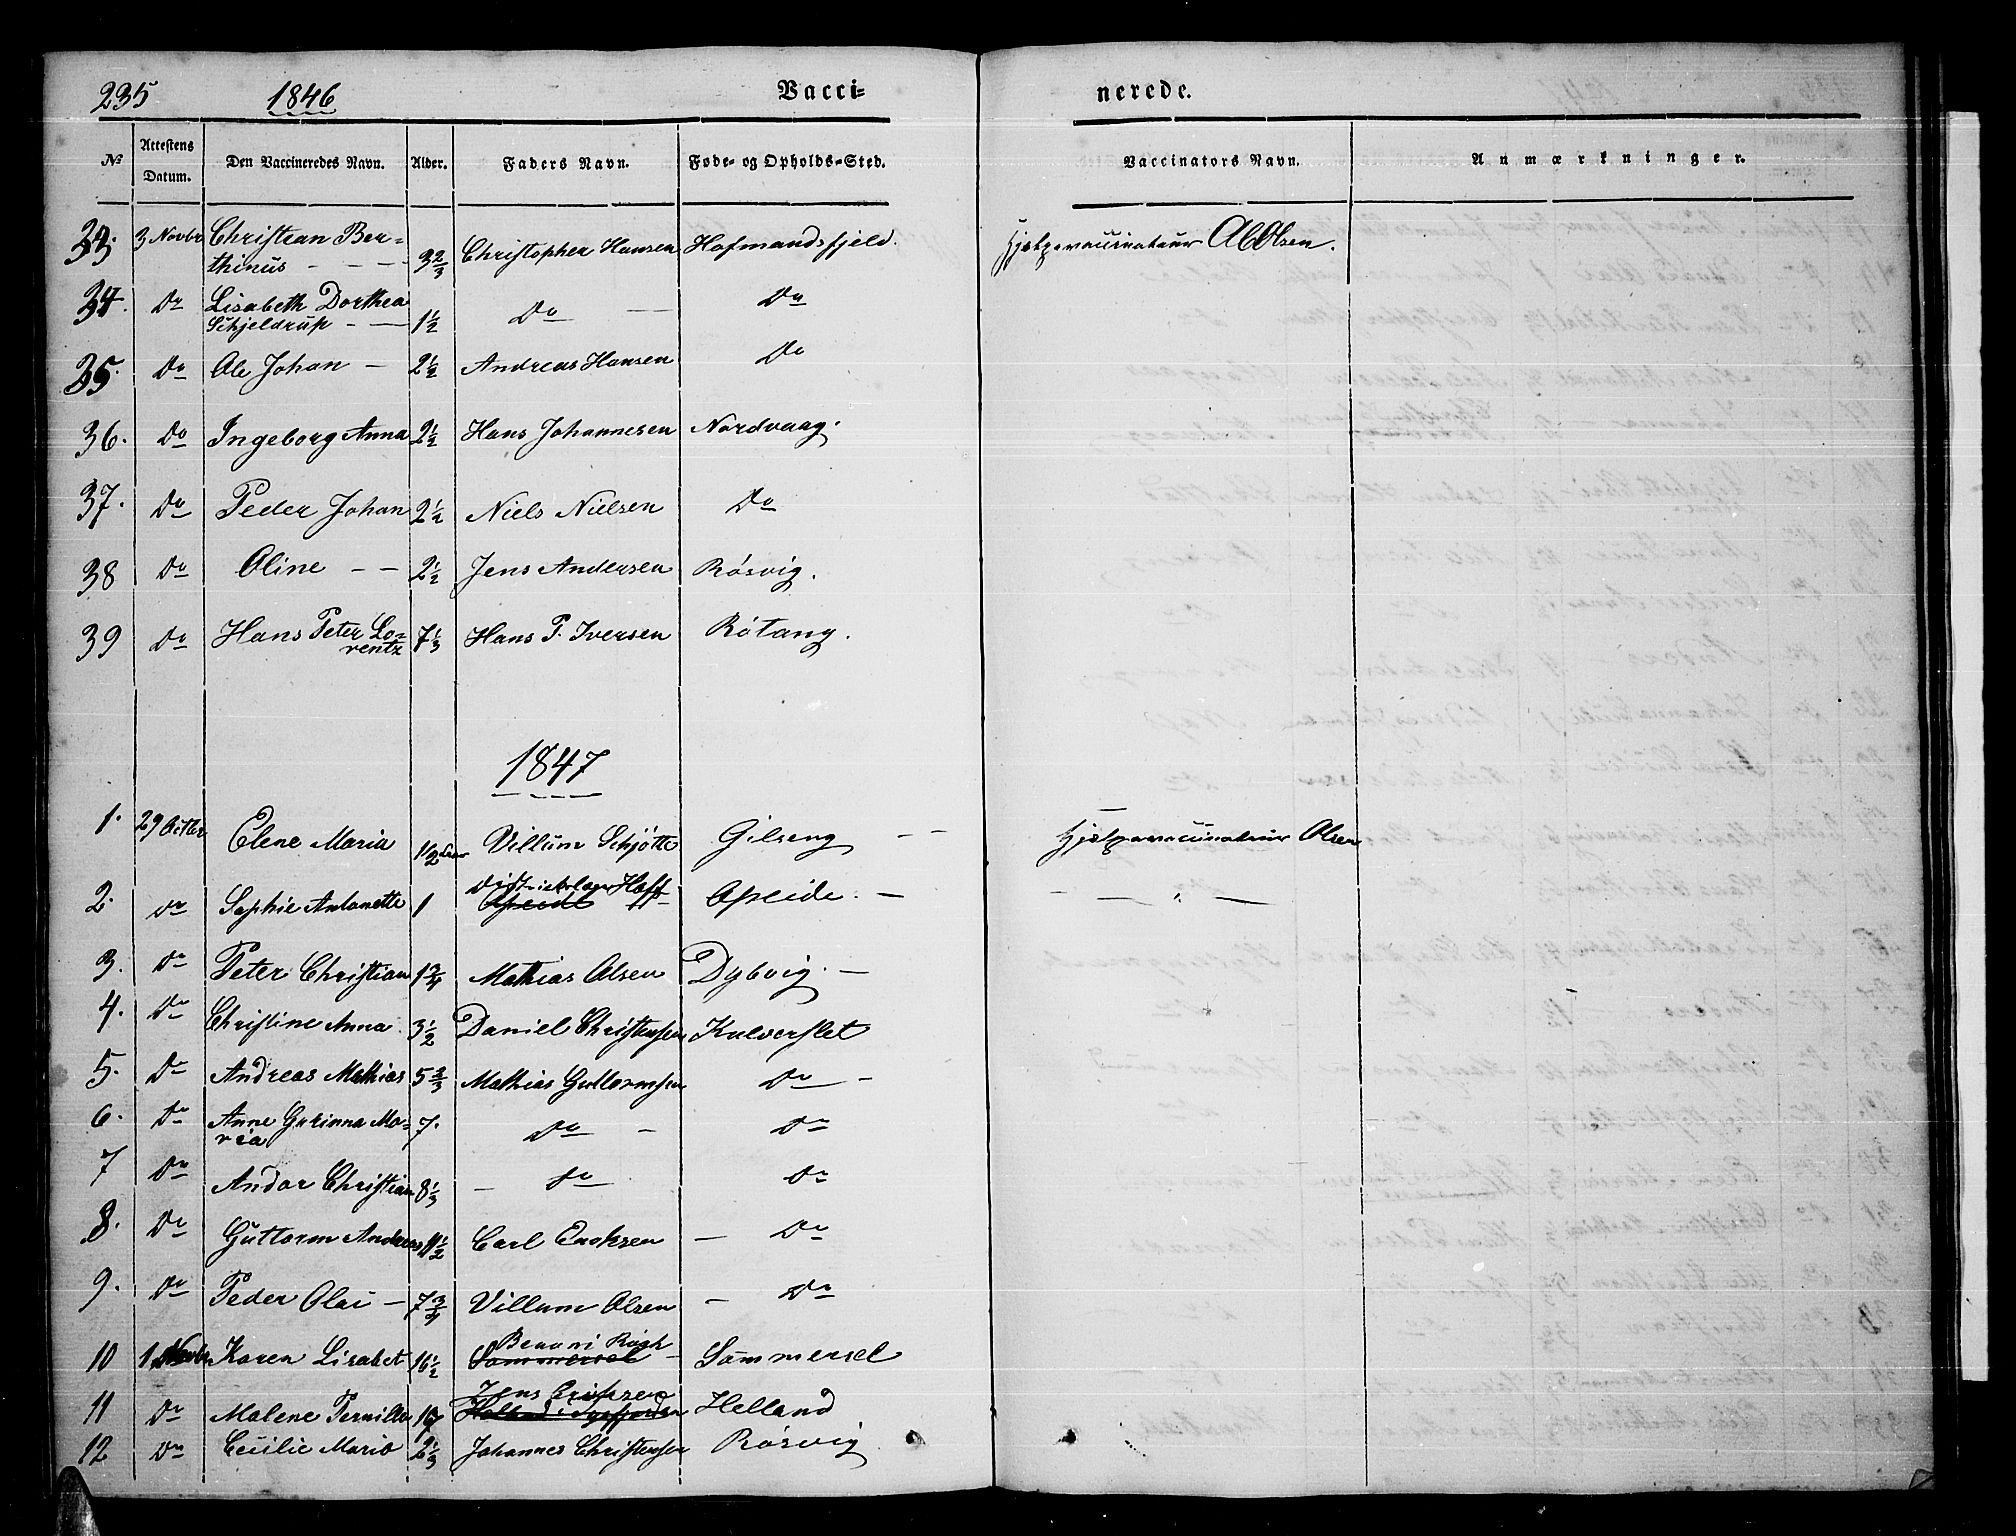 235 1846 Vacci- nerede.
№ Attestens Datum. Den Vaccineredes Navn. Alder. Faders Navn. Føde- og Opholds-Sted. Vaccinators Navn. Anmærkninger.
33. 3 Novbr Christian Ber-
thinus - - - 3 2/3 Christopher Hansen Hofmandsfjeld. Hjelpevaccinateur Olsen.
34. Do Lisabeth Dorthea
Schjeldrup - - 1 1/2 Do - Do
35. Do Ole Johan - 2 1/2 Andreas Hansen Do
36. Do Ingeborg Anna 2 1/2 Hans Johannesen Nordvaag.
37. Do Peder Johan 2 1/2 Niels Nielsen Do
38 Do Oline - - 2 1/2 Jens Andersen Røsvig.
39 Do Hans Peter Lo-
rentz 7 1/3 Hans P. Iversen Røtang.
1847
1. 29 Octbr Elene Maria 1 1/2 Villum Schjøtte Gilseng - - Hjelpevaccinateur Olsen
2. Do Sophie Antonette 1 Hoff Apeide. - - " -
3. Do Peter Christian 1 3/4 Mathias Olsen Dybvig. -
4. Do Christine Anna 3 1/2 Daniel Christensen Kulverslet
5. Do Andreas Mathias 5 2/3 Mathias Guttormsen Do -
6. Do Anne Gurinna Ma-
ria 7. Do - Do
7 Do Andor Christian 8 1/3 - Do Do
8. Do Guttorm Andreas 11 1/2 Carl Enoksen - Do
9. Do Peder Olai - 7 3/4 Villum Olsen - Do
10 1 Novbr Karen Lisabet 16 1/2 Benoni Røgh
Sommersel - Sommersel
11 Do Malene Pernille 17 Jens Eriksen
Helland
12 Do Cecilie Maria 2 1/3 Johannes Christensen Røsvig